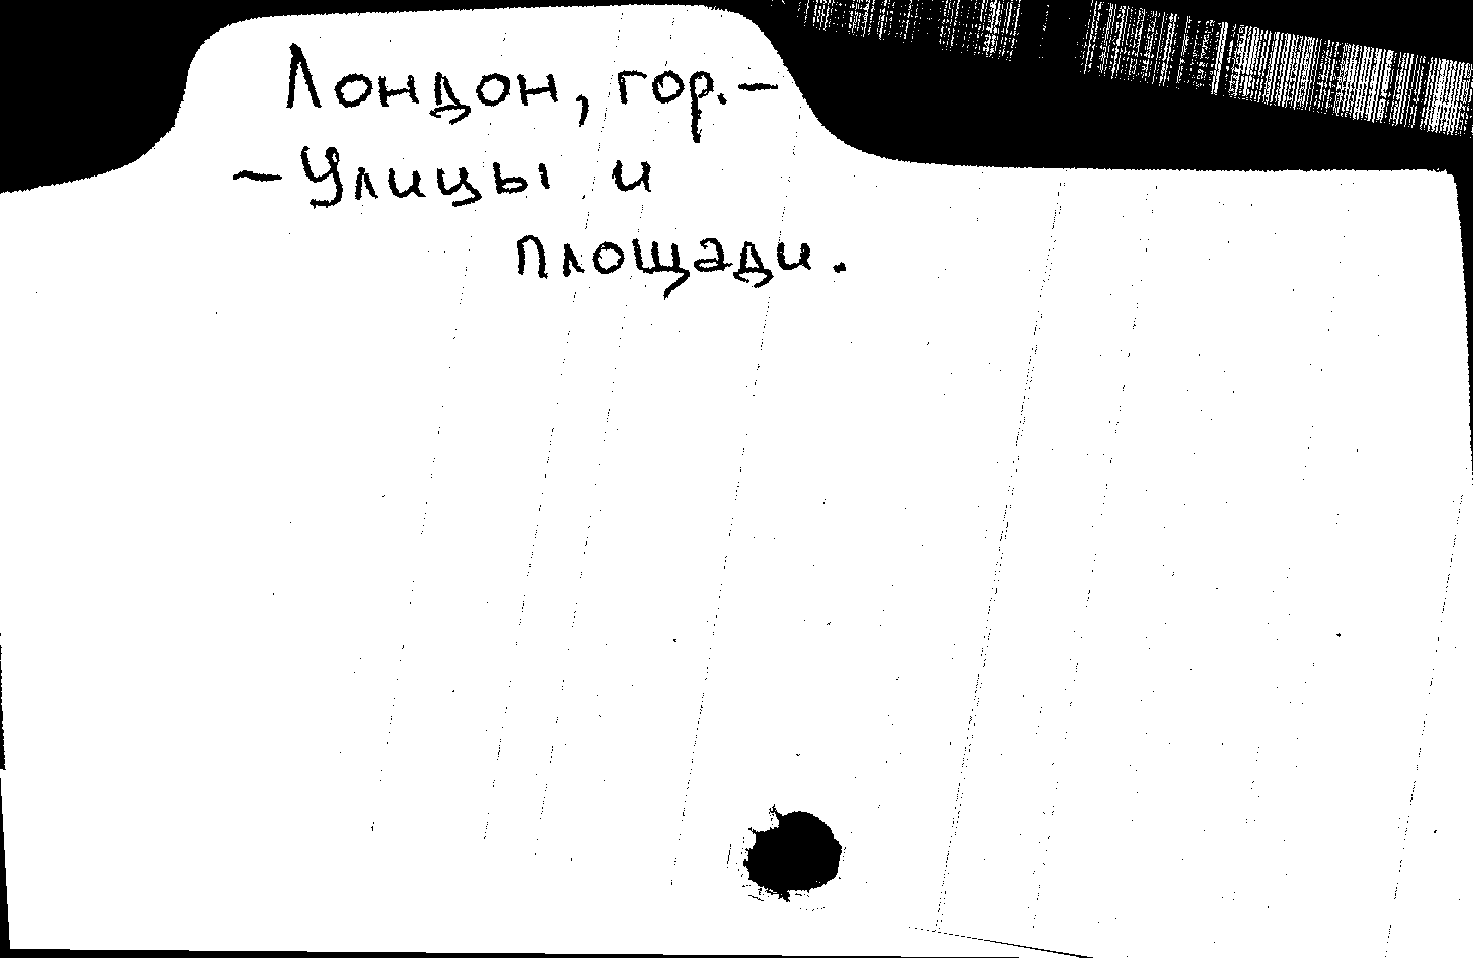 Лондон, гор. –
– Улицы и
площади.